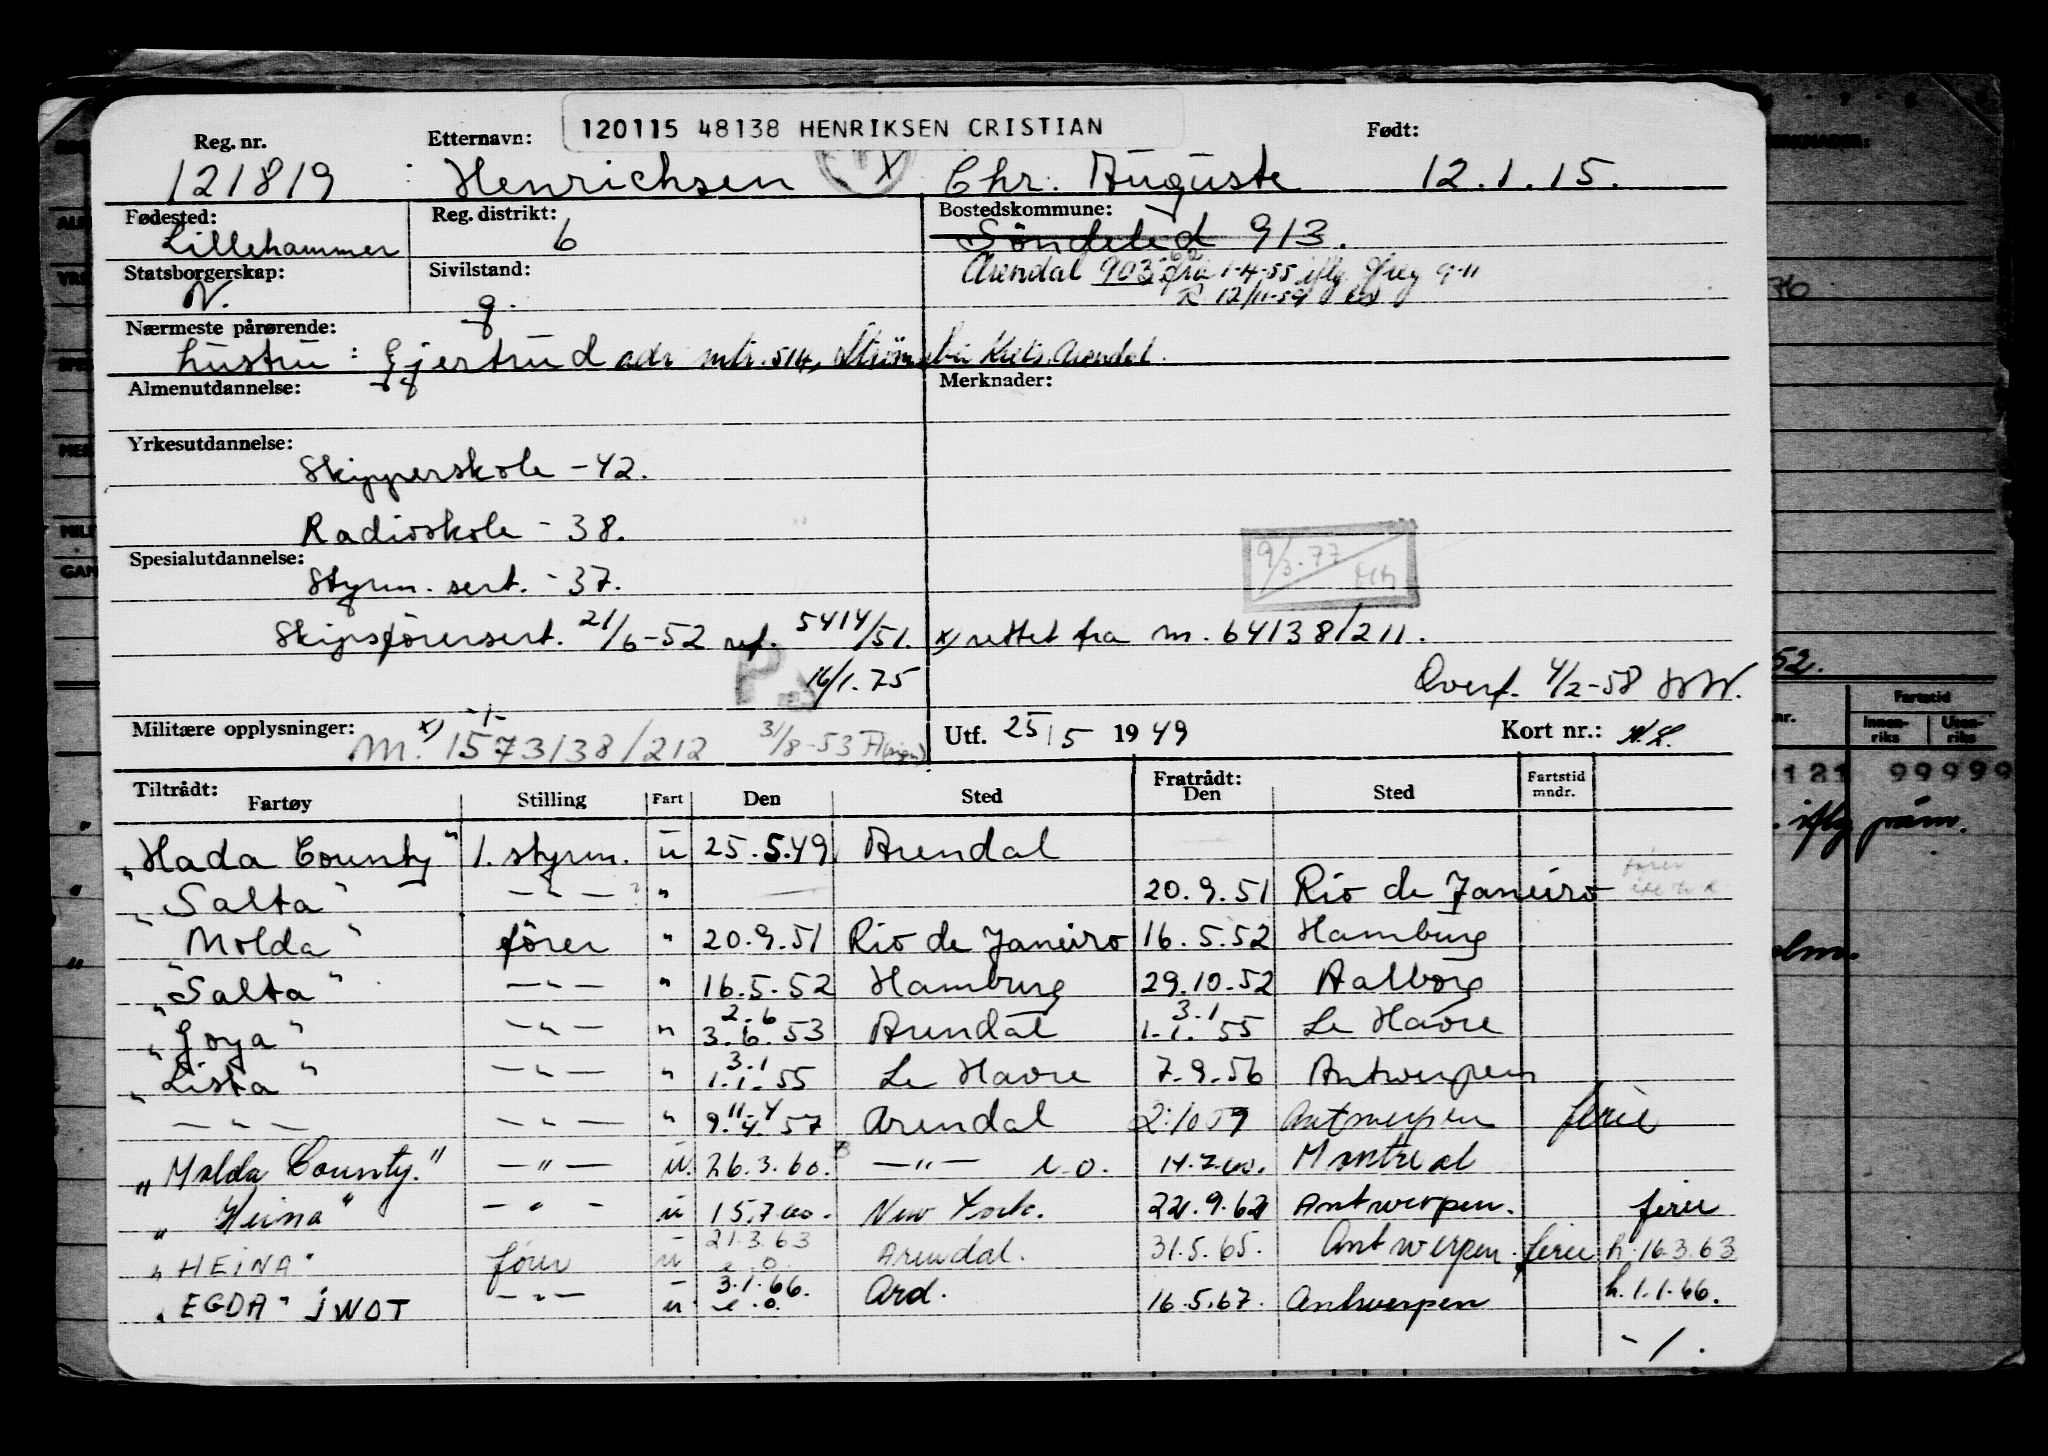 120115 48138 HENRIKSEN CRISTIAN
Reg. nr. Etternavn: Født:
121819 Henrichsen X Chr. Auguste 12.1.15.
Fødested: Reg. distrikt: Bostedskommune:
Lillehammer 6 Söndeled 913.
Statsborgerskap: Sivilstand: Arendal 903 fra 1-4-55 iflg. 9-11
N. g. R 12/11-59
Nærmeste pårørende:
hustru: Gjertrud adr. mtr. 514, Arendal.
Almenutdannelse: Merknader:
Yrkesutdannelse:
Skipperskole - 42.
Radioskole - 38.
Spesialutdannelse: 9/3.77
Styrm. sert. - 37.
Skipsförersert. 21/6-52 ref. 5414/51. x) rettet fra m. 64138/211.
16/1.75 Overf. 4/2-58
Militære opplysninger: x) -1-
M. 1573138/212 31/8-53 Utf. 25/5 1949 Kort nr.:
Tiltrådt: Fratrådt:
Fartøy Stilling Fart Den Sted Den Sted Fartstid mndr.
"Hada County" 1. styrm. u 25.5.49 Arendal
"Salta" — " — ? " 20.9.51 Rio de Janeiro
"Molda" förer " 20.9.51 Rio de Janeiro 16.5.52 Hamburg
"Salta" — " — " 16.5.52 Hamburg 29.10.52 Aalborg
2.6 3.1
"Goya" — " — " 3.6.53 Arendal 1.1.55 Le Havre
3.1
"Lista" — " — " 1.1.55 Le Havre 7.9.56 Antwerpen
11-4
— " — — " — " 9.4.57 Arendal 2.10 59 Antwerpen ferie
"Molda County." — " — u. 26.3.60. — " — e.o. 14.7.60. Montreal
"Heina" — " — u 15.7.60. New York. 22.9.62 Antwerpen. ferie
21.3.63
"HEINA" förer u e.o. Arendal. 31.5.65. Antwerpen. ferie h. 16.3.63
3.1.66.
"EGDA" JWOT — " — u e.o. Ard. 16.5.67. Antwerpen h. 1.1.66.
-1.
Fartstid
Innenriks Utenriks
99999
52.